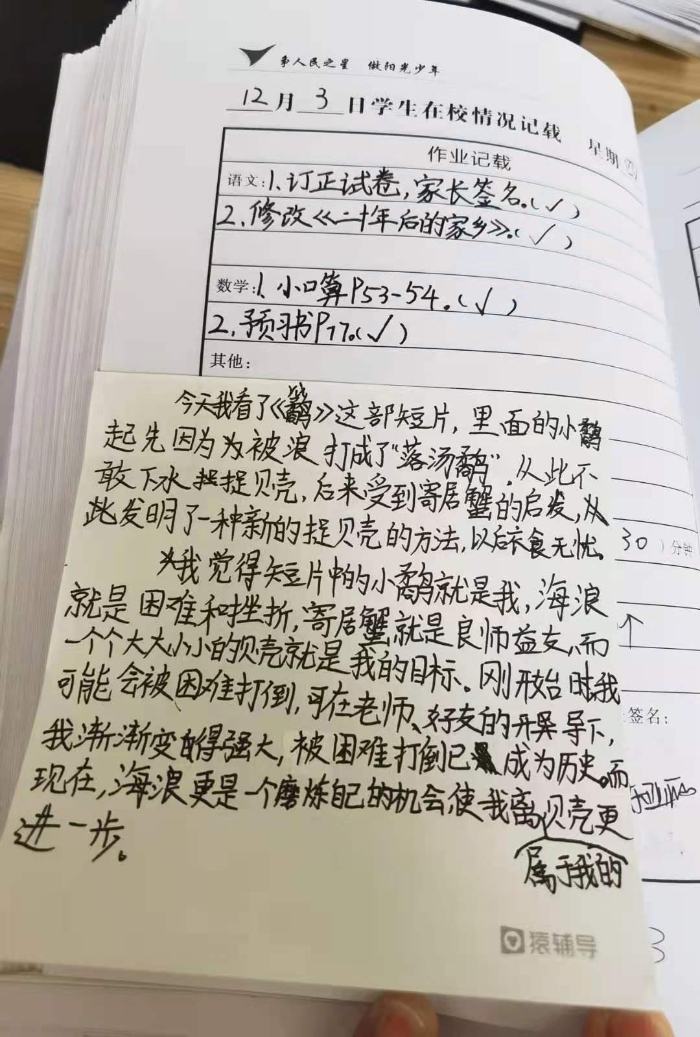 争人民之星 做阳光少年
12月3日学生在校情况记载 星期
作业记载
语文:1.订正试卷,家长签名。(√)
2.修改《二十年后的家乡》。(√)
数学:1.小口算P53-54。(√)
2.预习书P77。(√)
其他:
今天我看了《鹬》这部短片,里面的小鹬
起先因为为被浪打成了“落汤鹬”,从此不
敢下水捉贝壳,后来受到寄居蟹的启发,从
此发明了一种新的捉贝壳的方法,以后衣食无忧。
30)分钟
我觉得短片中的小鹬就是我,海浪
就是困难和挫折,寄居蟹就是良师益友,而
一个个大大小小的贝壳就是我的目标。刚开始时我
可能会被困难打倒,可在老师、好友的开导下,
签名:
我渐渐变得强大,被困难打倒已成为历史。而
现在,海浪更是一个磨炼自己的机会,使我离贝壳更
属于我的
进一步。
猿辅导
3